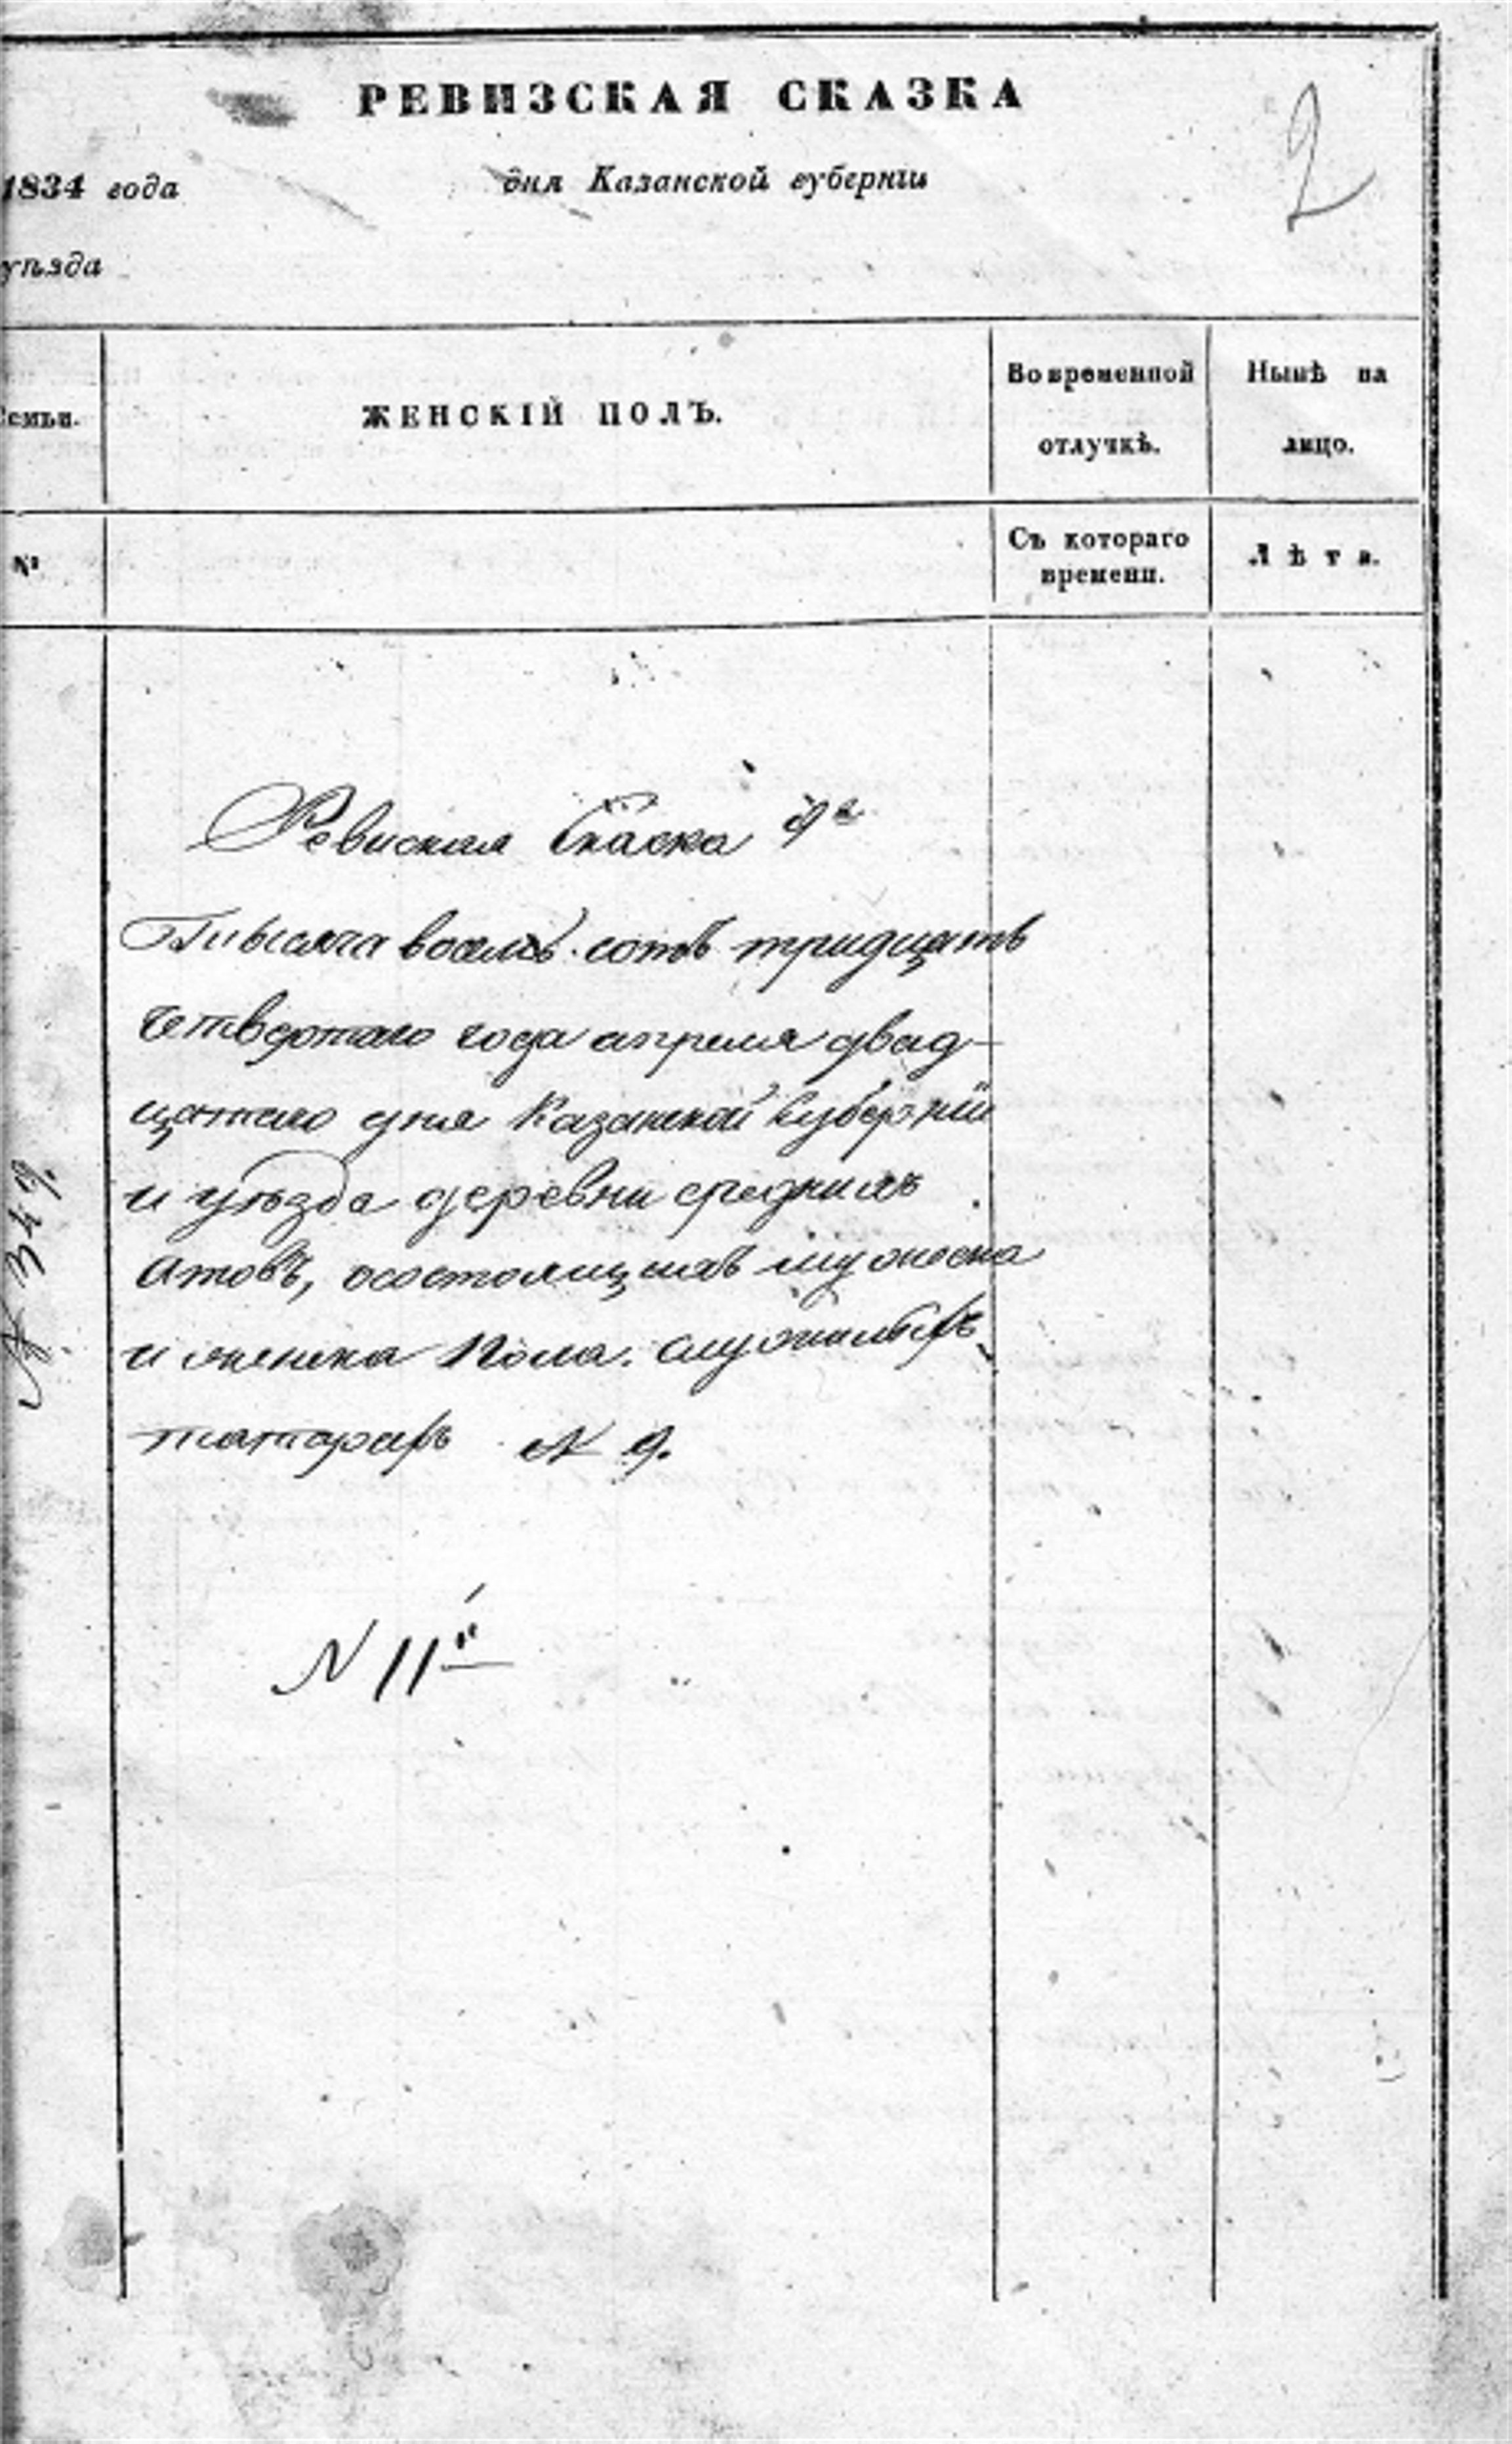 РЕВИЗСКАЯ СКАЗКА
2
1834 года дня Казанской губерніи
уѣзда
Семьи.
ЖЕНСКІЙ ПОЛЪ.
Во временной
отлучкѣ.
Нынѣ на
лицо.
№
Съ котораго
времени.
Лѣта.
Ревиская Скаска
Тысяча восемь сотъ тридцать
четвертаго года апреля двад-
цатаго дня Казанской Губерніи
и уѣзда деревни среднихъ
Атовъ, осостоящихъ мужеска
и женска пола. служилыхъ
татарахъ N 9.
N 349.
N 11й